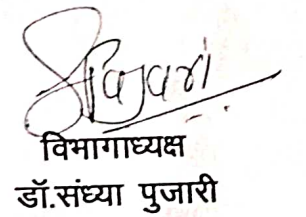 विभागाध्यक्ष
डॉ.संध्या पुजारी